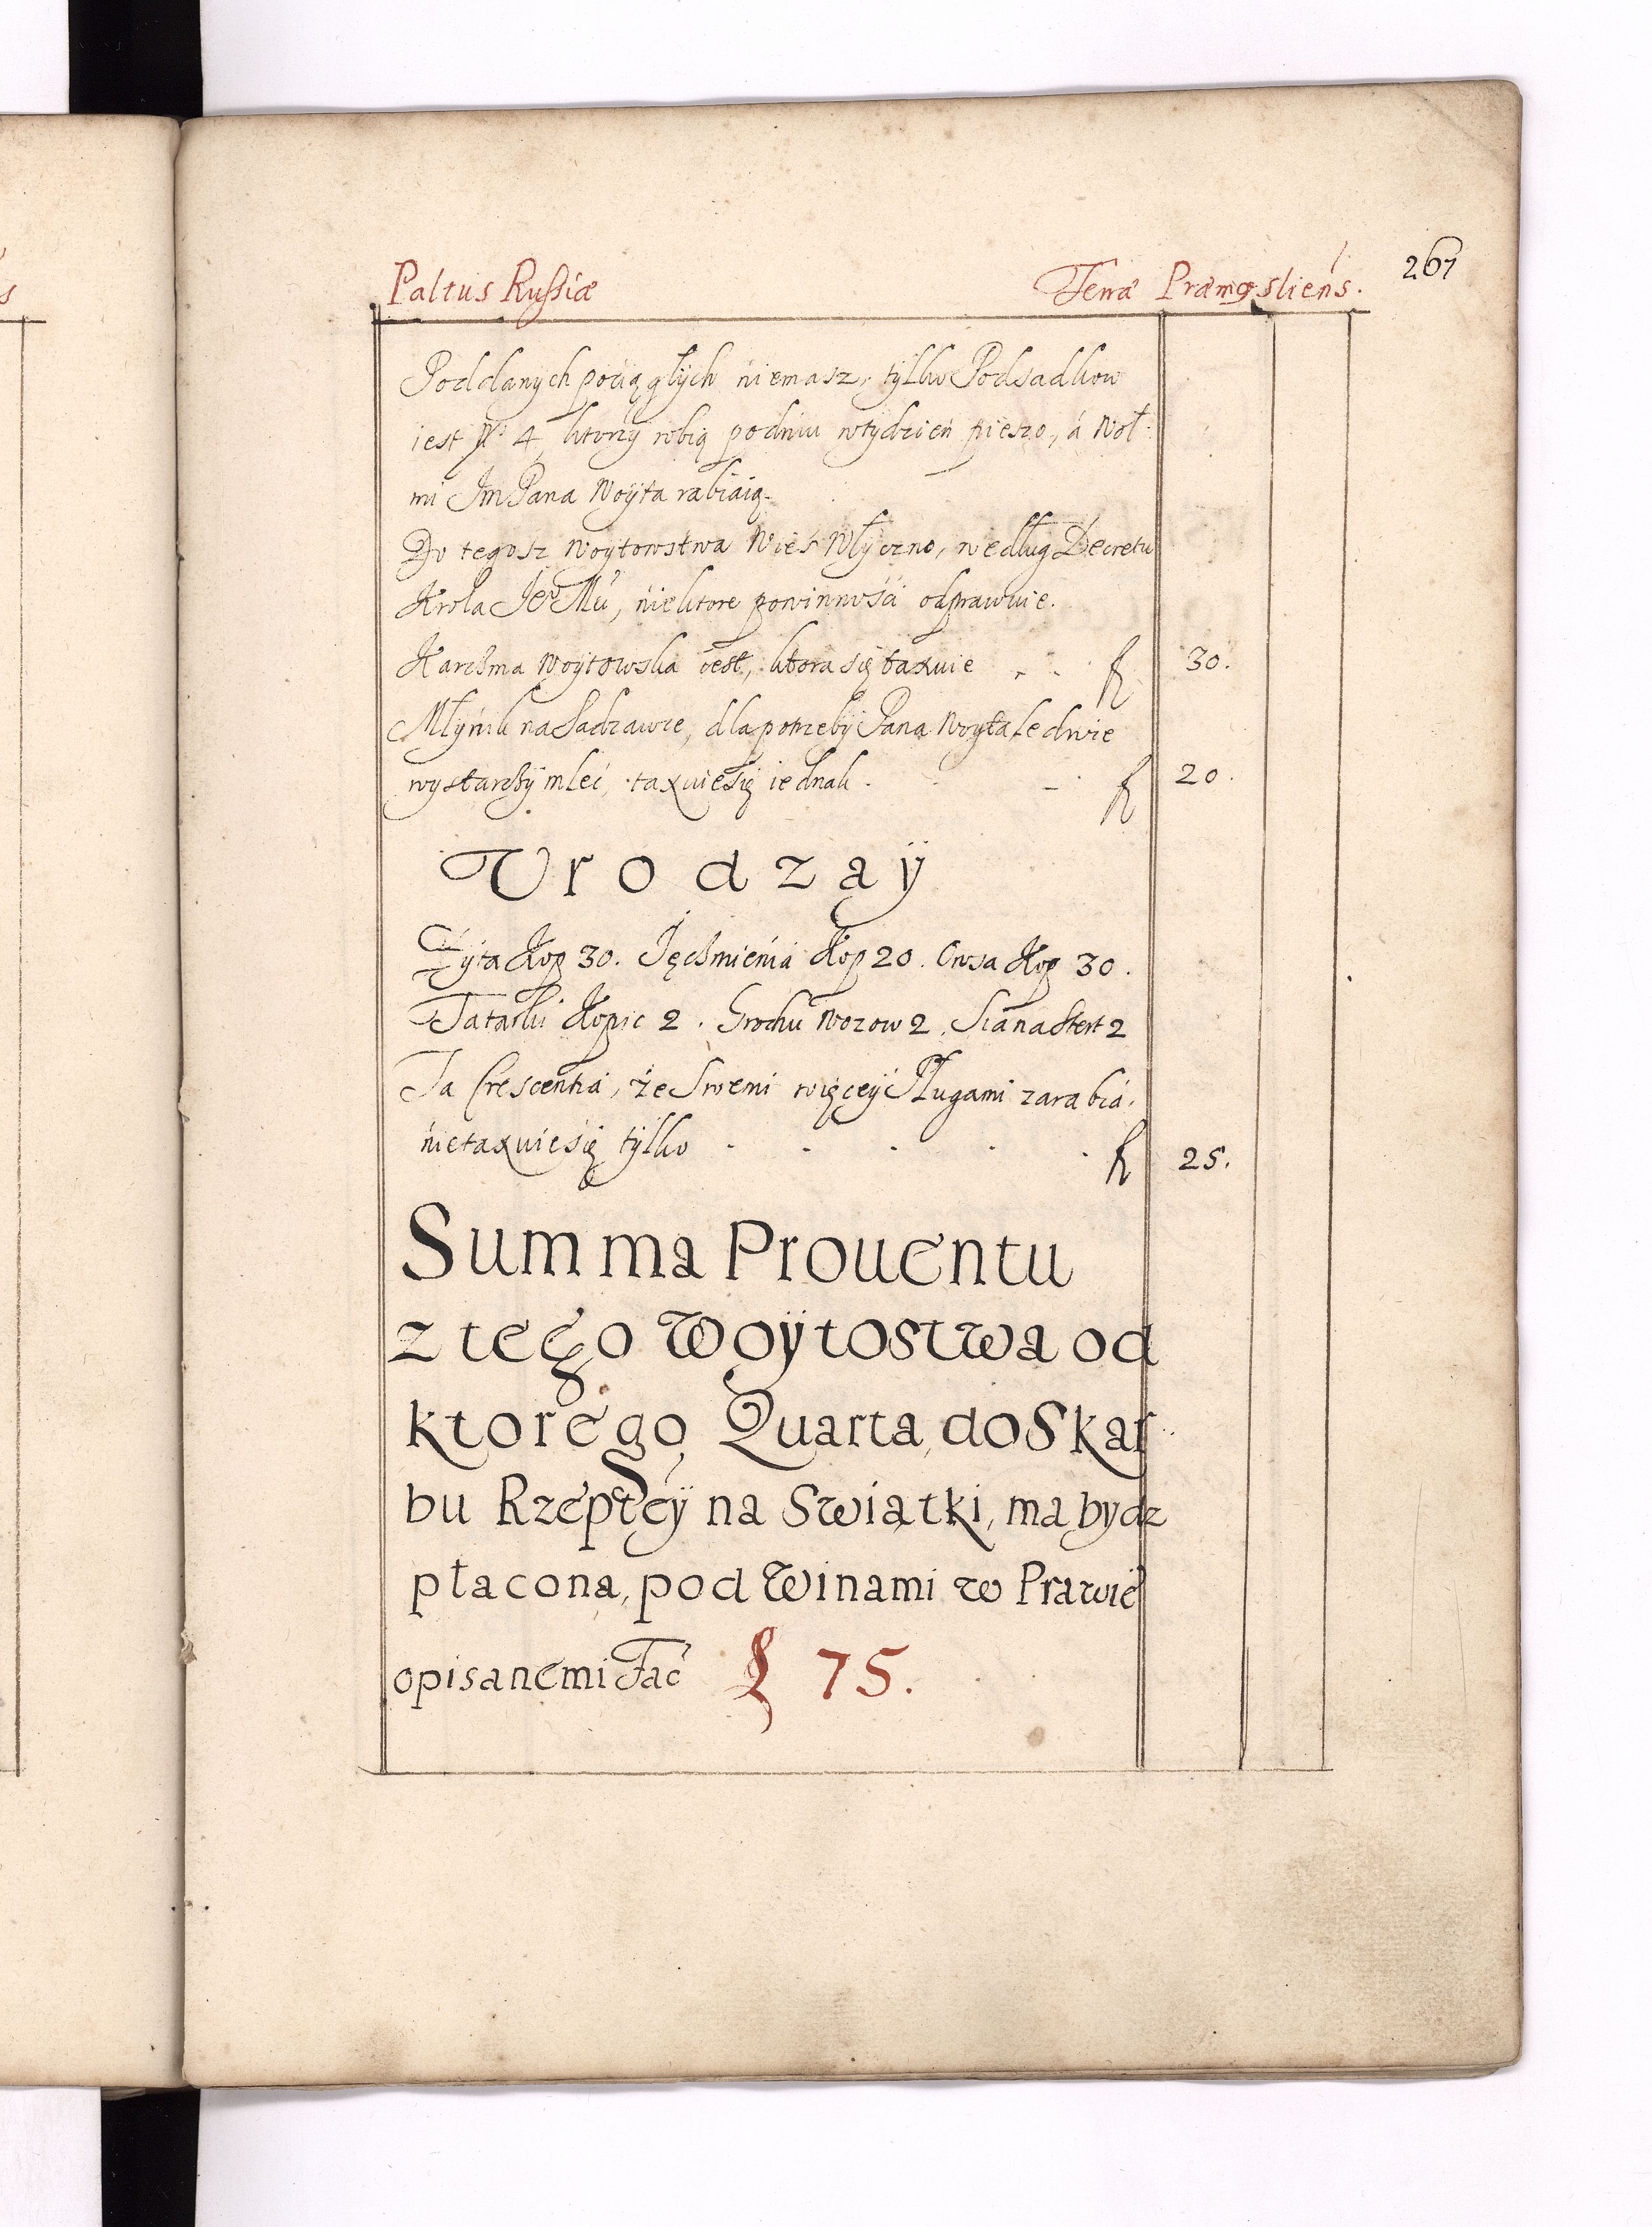 Paltus Rußiæ Terræ Præmysliens. 267
Poddanych pociągłÿch niemasz, tÿlko Podsadkow
iest N. 4, ktorzÿ robią podniu wtÿdzień pieszo, á Woł:
mi Jm Pana Woÿta rabiaią.
Do tegosz Woytowstwa Wieś Włÿczno, według Decretu
Krola Je° Mći, niektore powinnośći odprawuie.
Karcżma Woÿtowska iest, ktora się taxuie . . fl 30.
Młÿnik na Sadzawce, dla potrzebÿ Pana Woÿta ledwie
wystarcżÿ mleć, taxuie się iednak . . fl 20.
Vrodzaÿ
Żÿta Kop 30. Jęcżmienia Kop 20. Owsa Kop 30.
Tatarki Kopic 2. Grochu Wozow 2. Siana Stert 2
Ta Crescentia, że Swemi więceÿ Pługami zarabia,
nie taxuie się tÿlko . . . . . fl 25.
Summa Prouentu
z tego Woÿtostwa od
ktorego Quarta do Skar
bu Rzepłeÿ na Swiątki, ma bydz
płacona, pod Winami w Prawie
opisanemi Fać fl 75.